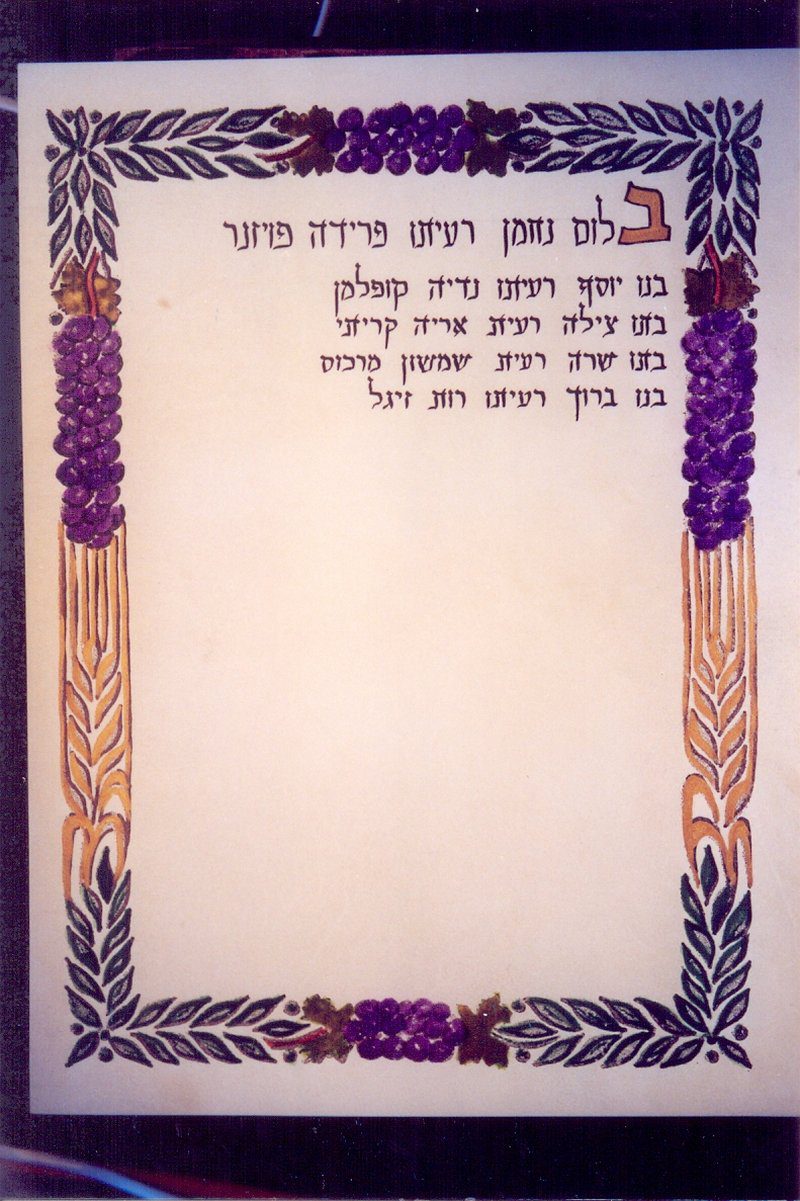 בלום נחמן רעיתו פרידה פויזנר
בנו יוסף רעיתו נדיה קופלמן
בתו צילה רעית אריה קריתי
בתו שרה רעית שמשון מרכוס
בנו ברוך רעיתו רות זיגל